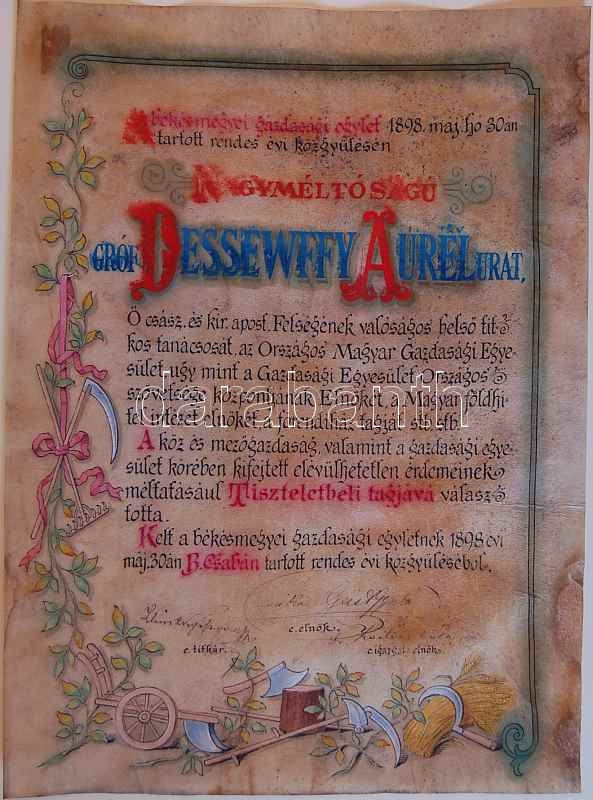 A békésmegyei gazdasági egylet 1898. máj. hó 30án
tartott rendes évi közgyülésén
NAGYMÉLTÓSÁGÚ
GRÓF DESSEWFFY AURÉL URAT,
Ő csász. és kir. apost. Felségének valóságos belső tit-
kos tanácsosát, az Országos Magyar Gazdasági Egye-
sület, ugy mint a Gazdasági Egyesület Országos
szövetsége központjának Elnökét, a Magyar földhi-
tel intézet elnökét, a förendiház tagját stb. stb.
A köz és mezőgazdaság, valamint a gazdasági egye-
sület körében kifejtett elévülhetetlen érdemeinek
méltatásául Tiszteletbeli tagjává válasz-
totta.
Kelt a békésmegyei gazdasági egyletnek 1898 évi
máj. 30án B. Csabán tartott rendes évi közgyüléséből.
e. elnök.
e. titkár.
e. igazgat. elnök.
darabanth